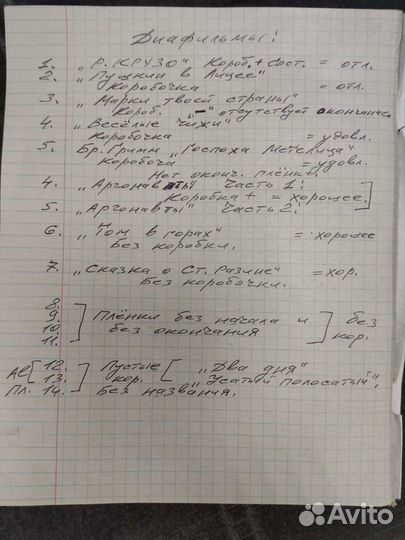 Диафильмы:
1. „Р. КРУЗО" Короб. + Сост. = отл.
2. „Пушкин в Лицее"
Коробочка = отл.
3. „Марки твоей страны"
Короб. „—" отсутствует окончание
4. „Весёлые чижи"
Коробочка = удовл.
5. Бр. Гримм „Госпожа Метелица"
Коробоча = удовл.
Нет оконч. плёнки
4. „Аргонавты Часть 1.
Коробка + = хорошее.
5. „Аргонавты" Часть 2.
6. „Том в горах" = хорошее
Без коробки.
7. „Сказка о Ст. Разине" = хор.
Без коробочки.
8.
9. Плёнки без начала и без
10. без окончания кор.
11.
12. Пустые [ „Два дня"
13. кор. „Усатый полосатый",
Пл. 14. Без названия.
Avito